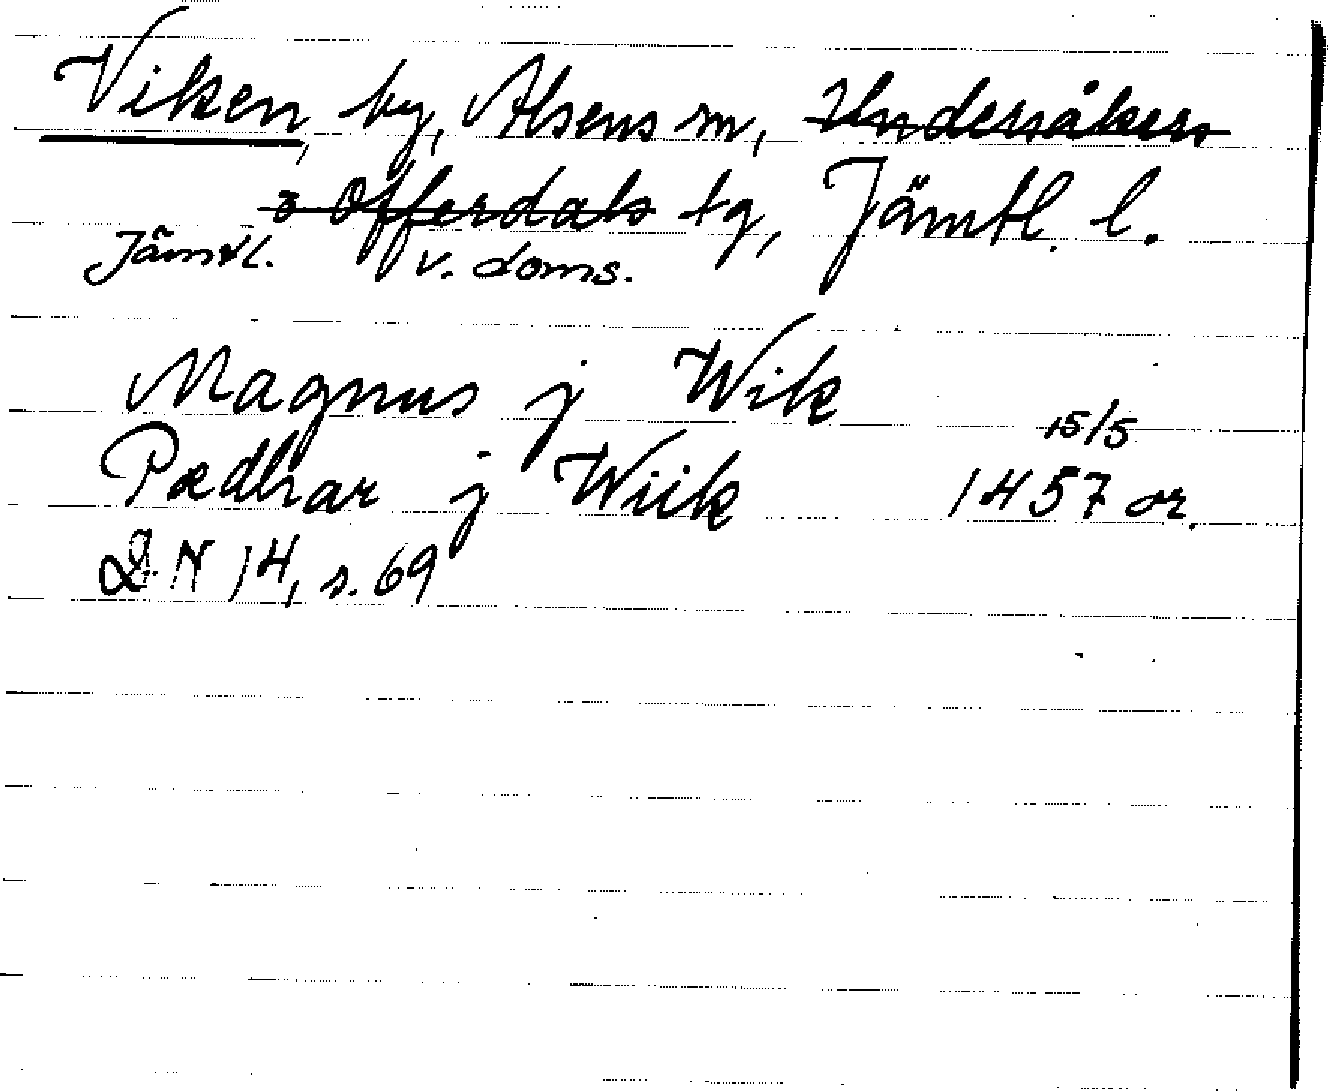 Viken, by, Alsens sn, Undersåkers
o Offerdals tg, Jämtl. l.
Jämtl. v. doms.
Magnus j Wik
15/5
Pædhar j Wiik 1457 or.
DN 14, s. 69